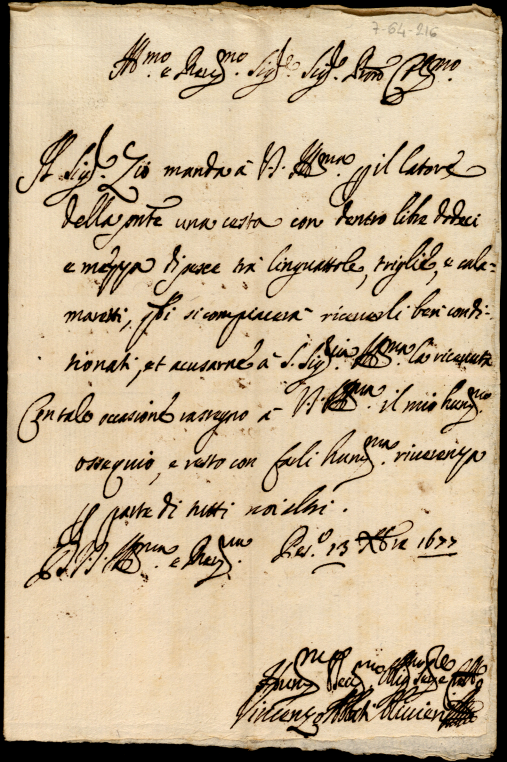 7-64-216
Ill.mo e Rev.mo Sig.re Sig.r Pron Col.mo
Il Sig.r Zio manda à V.S. Ill.ma p il latore
della pnte una cesta con dentro libre dodeci
e mezza di pesce trà linguattole, triglie, e cala-
maretti, si compiacerà riceverli ben condi-
tionati, et accusarne à S. Sig.ria Ill.ma la ricevuta
Con tale occasione rassegno à V.S. Ill.ma il mio hum.mo
ossequio, e resto con farli hum.ma riverenza
p parte di tutti noi altri.
D.V.S. Ill.ma e Rev.ma Pes.o 13 Xbre 1677
Hum.mo Dev.mo Obl.mo
Vincenzo Abbati Olivieri